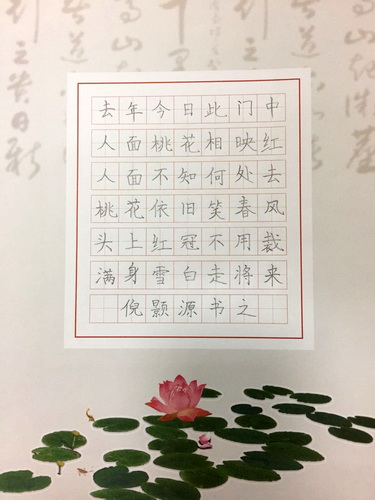 去年今日此门中
人面桃花相映红
人面不知何处去
桃花依旧笑春风
头上红冠不用裁
满身雪白走将来
倪颢源书之